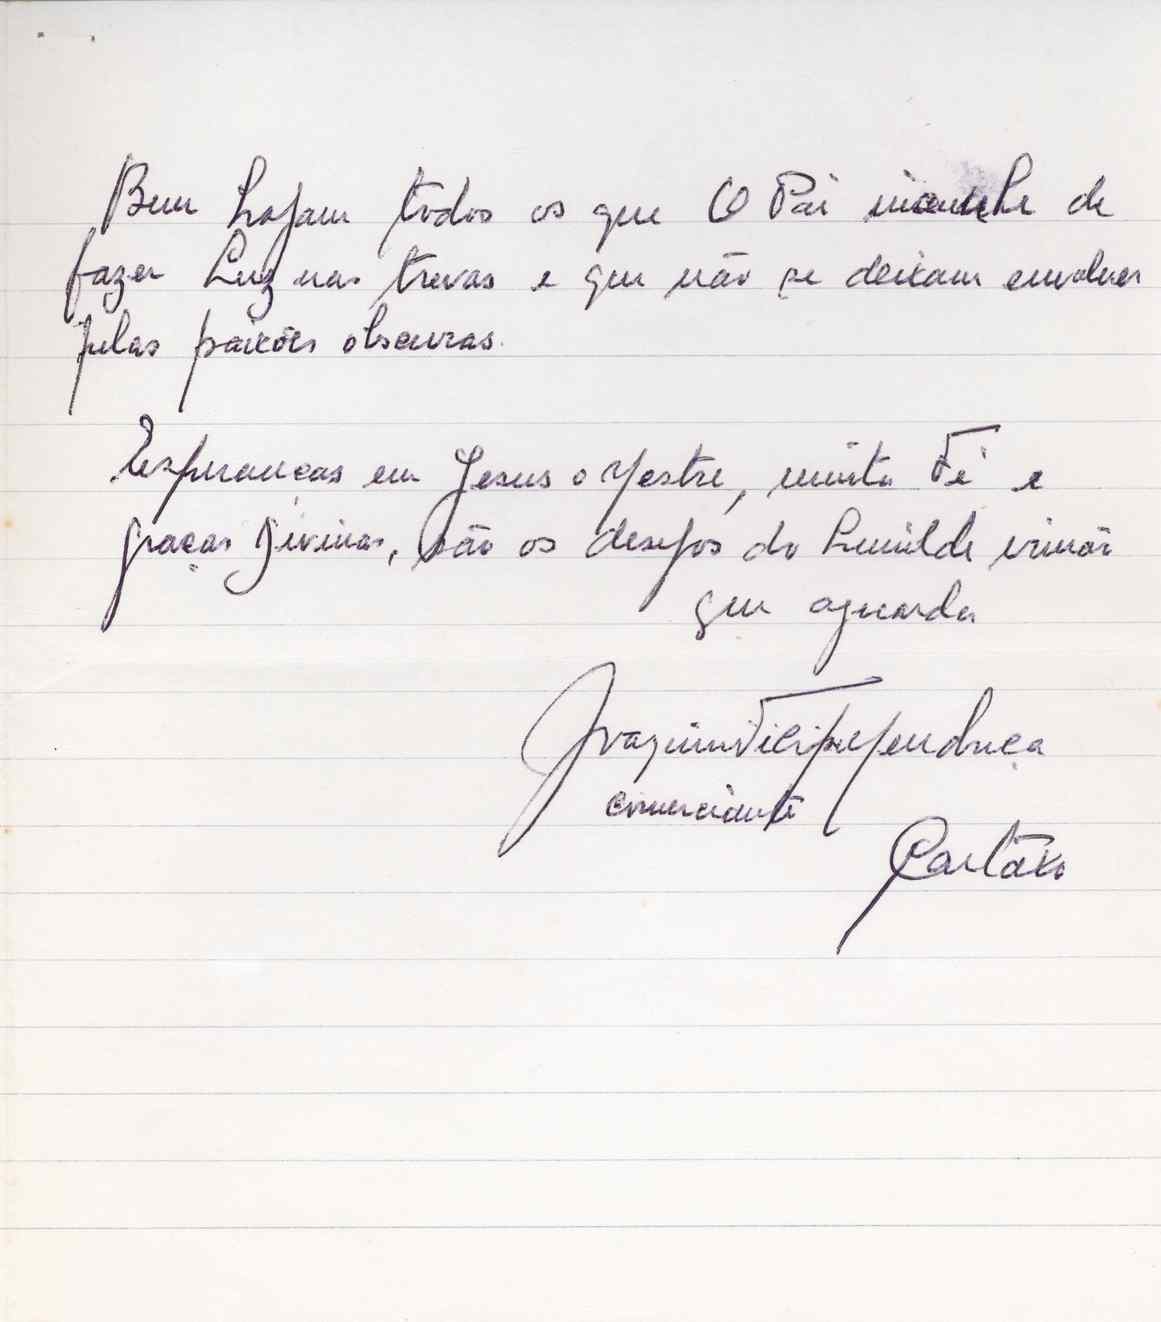 Bem hajam todos os que O Pai incumbe de
fazer Luz nas trevas e que não se deixam envolver
pelas paixões obscuras.
Esperanças em Jesus o Mestre, muita Fé e
graças Divinas, são os desejos do humilde irmão
que aguarda
Joaquim Filipe Mendonça
comerciante